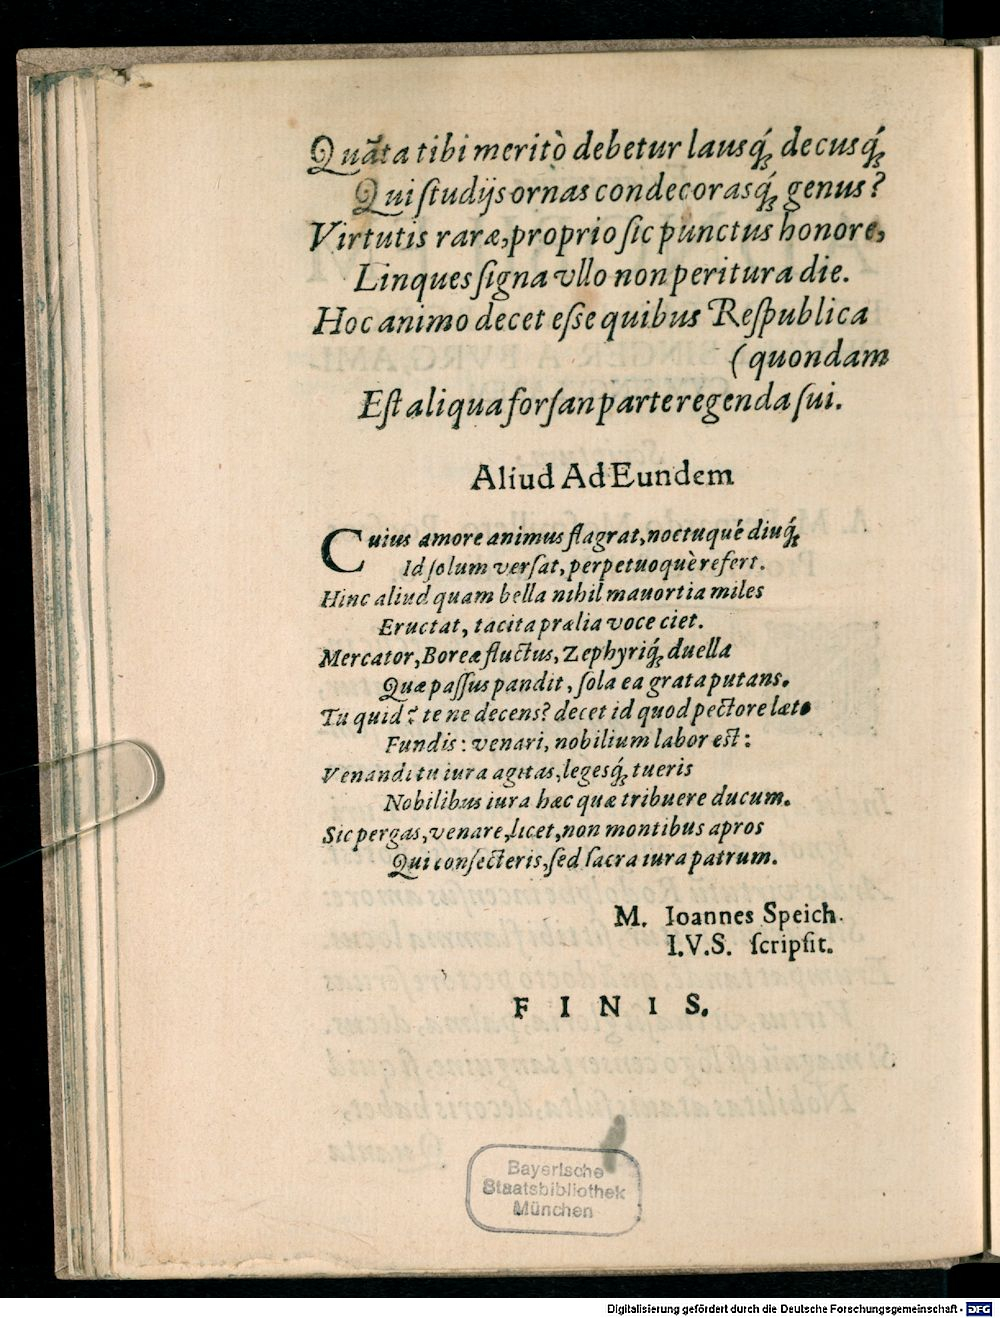 Quãta tibi meritò debetur lausq́ꝫ decusq́ꝫ
Qui ſtudijs ornas condecorasq́ꝫ genus?
Virtutis raræ, proprio ſic punctus honore,
Linques ſigna vllo non peritura die.
Hoc animo decet eſse quibus Reſpublica
(quondam
Eſt aliqua forſan parte regenda ſui.
Aliud Ad Eundem
Cuius amore animus flagrat, noctuqué diuq́ꝫ
Id ſolum verſat, perpetuoquè refert.
Hinc aliud quam bella nihil mauortia miles
Eructat, tacita prælia voce ciet.
Mercator, Boreæ fluctus, Zephyriq́ꝫ duella
Quæ paſſus pandit, ſola ea grata putans.
Tu quid? te ne decens? decet id quod pectore læto
Fundis: venari, nobilium labor est:
Venandi tu iura agitas, legesq́ꝫ tueris
Nobilibus iura hæc quæ tribuere ducum.
Sic pergas, venare, licet, non montibus apros
Qui conſecteris, ſed ſacra iura patrum.
M. Ioannes Speich.
I.V.S. ſcripſit.
F I N I S.
Bayerische
Staatsbibliothek
München
Digitalisierung gefördert durch die Deutsche Forschungsgemeinschaft - DFG